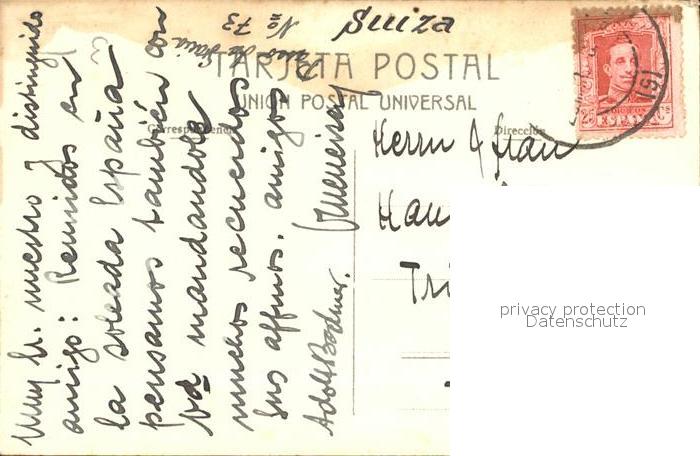 Suiza
Nº 73
TARJETA POSTAL
UNION POSTAL UNIVERSAL
Correspondencia
Dirección
ESPAÑA
Muy Sr. nuestro y distinguido
amigo: Reunidos en
la soleada España
pensamos también con
Vd mandandole
muchos recuerdos
Sus affmos. amigos
Adolf Bodmer.
Herrn & Frau
Hau
Tri
privacy protection
Datenschutz